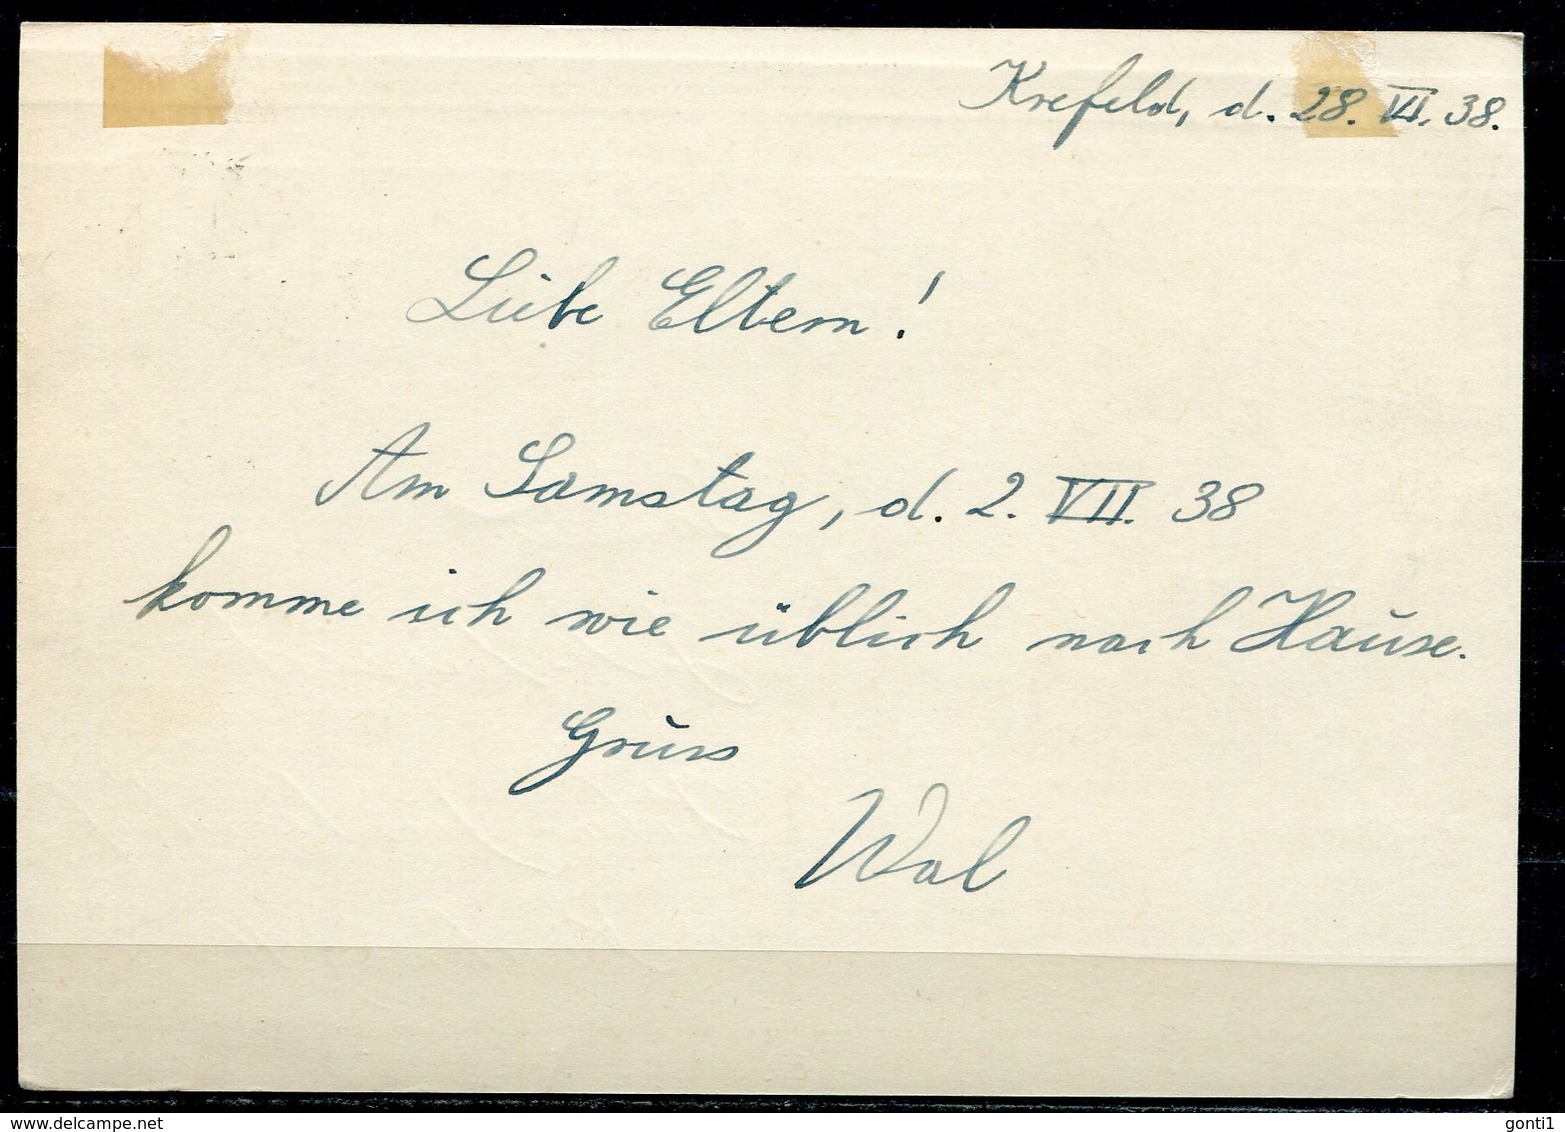 Krefeld, d. 28. VI. 38.
Liebe Eltern!
Am Samstag, d. 2. VII. 38
komme ich wie üblich nach Hause.
Gruss
Wal
delcampe.net
gonti1